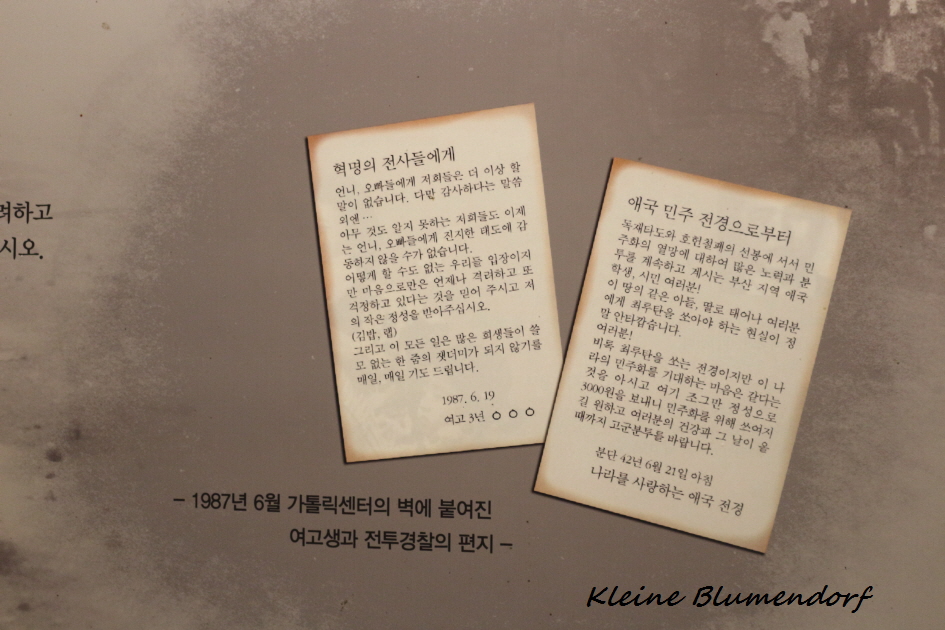 려하고
시오.
혁명의 전사들에게
언니, 오빠들에게 저희들은 더 이상 할
말이 없습니다. 다만 감사하다는 말씀
외엔…
아무 것도 알지 못하는 저희들도 이제
는 언니, 오빠들에게 진지한 태도에 감
동하지 않을 수가 없습니다.
어떻게 할 수도 없는 우리들 입장이지
만 마음으로만은 언제나 격려하고 또
걱정하고 있다는 것을 믿어 주시고 저
의 작은 정성을 받아주십시오.
(김밥, 랩)
그리고 이 모든 일은 많은 희생들이 쓸
모 없는 한 줌의 잿더미가 되지 않기를
매일, 매일 기도 드립니다.
1987. 6. 19
여고 3년 ○ ○ ○
애국 민주 전경으로부터
독재타도와 호헌철폐의 선봉에 서서 민
주화의 열망에 대하여 많은 노력과 분
투를 계속하고 계시는 부산 지역 애국
학생, 시민 여러분!
이 땅의 같은 아들, 딸로 태어나 여러분
에게 최루탄을 쏘아야 하는 현실이 정
말 안타깝습니다.
여러분!
비록 최루탄을 쏘는 전경이지만 이 나
라의 민주화를 기대하는 마음은 같다는
것을 아시고 여기 조그만 정성으로
3000원을 보내니 민주화를 위해 쓰여지
길 원하고 여러분의 건강과 그 날이 올
때까지 고군분투를 바랍니다.
분단 42년 6월 21일 아침
나라를 사랑하는 애국 전경
– 1987년 6월 가톨릭센터의 벽에 붙여진
여고생과 전투경찰의 편지 –
Kleine Blumendorf